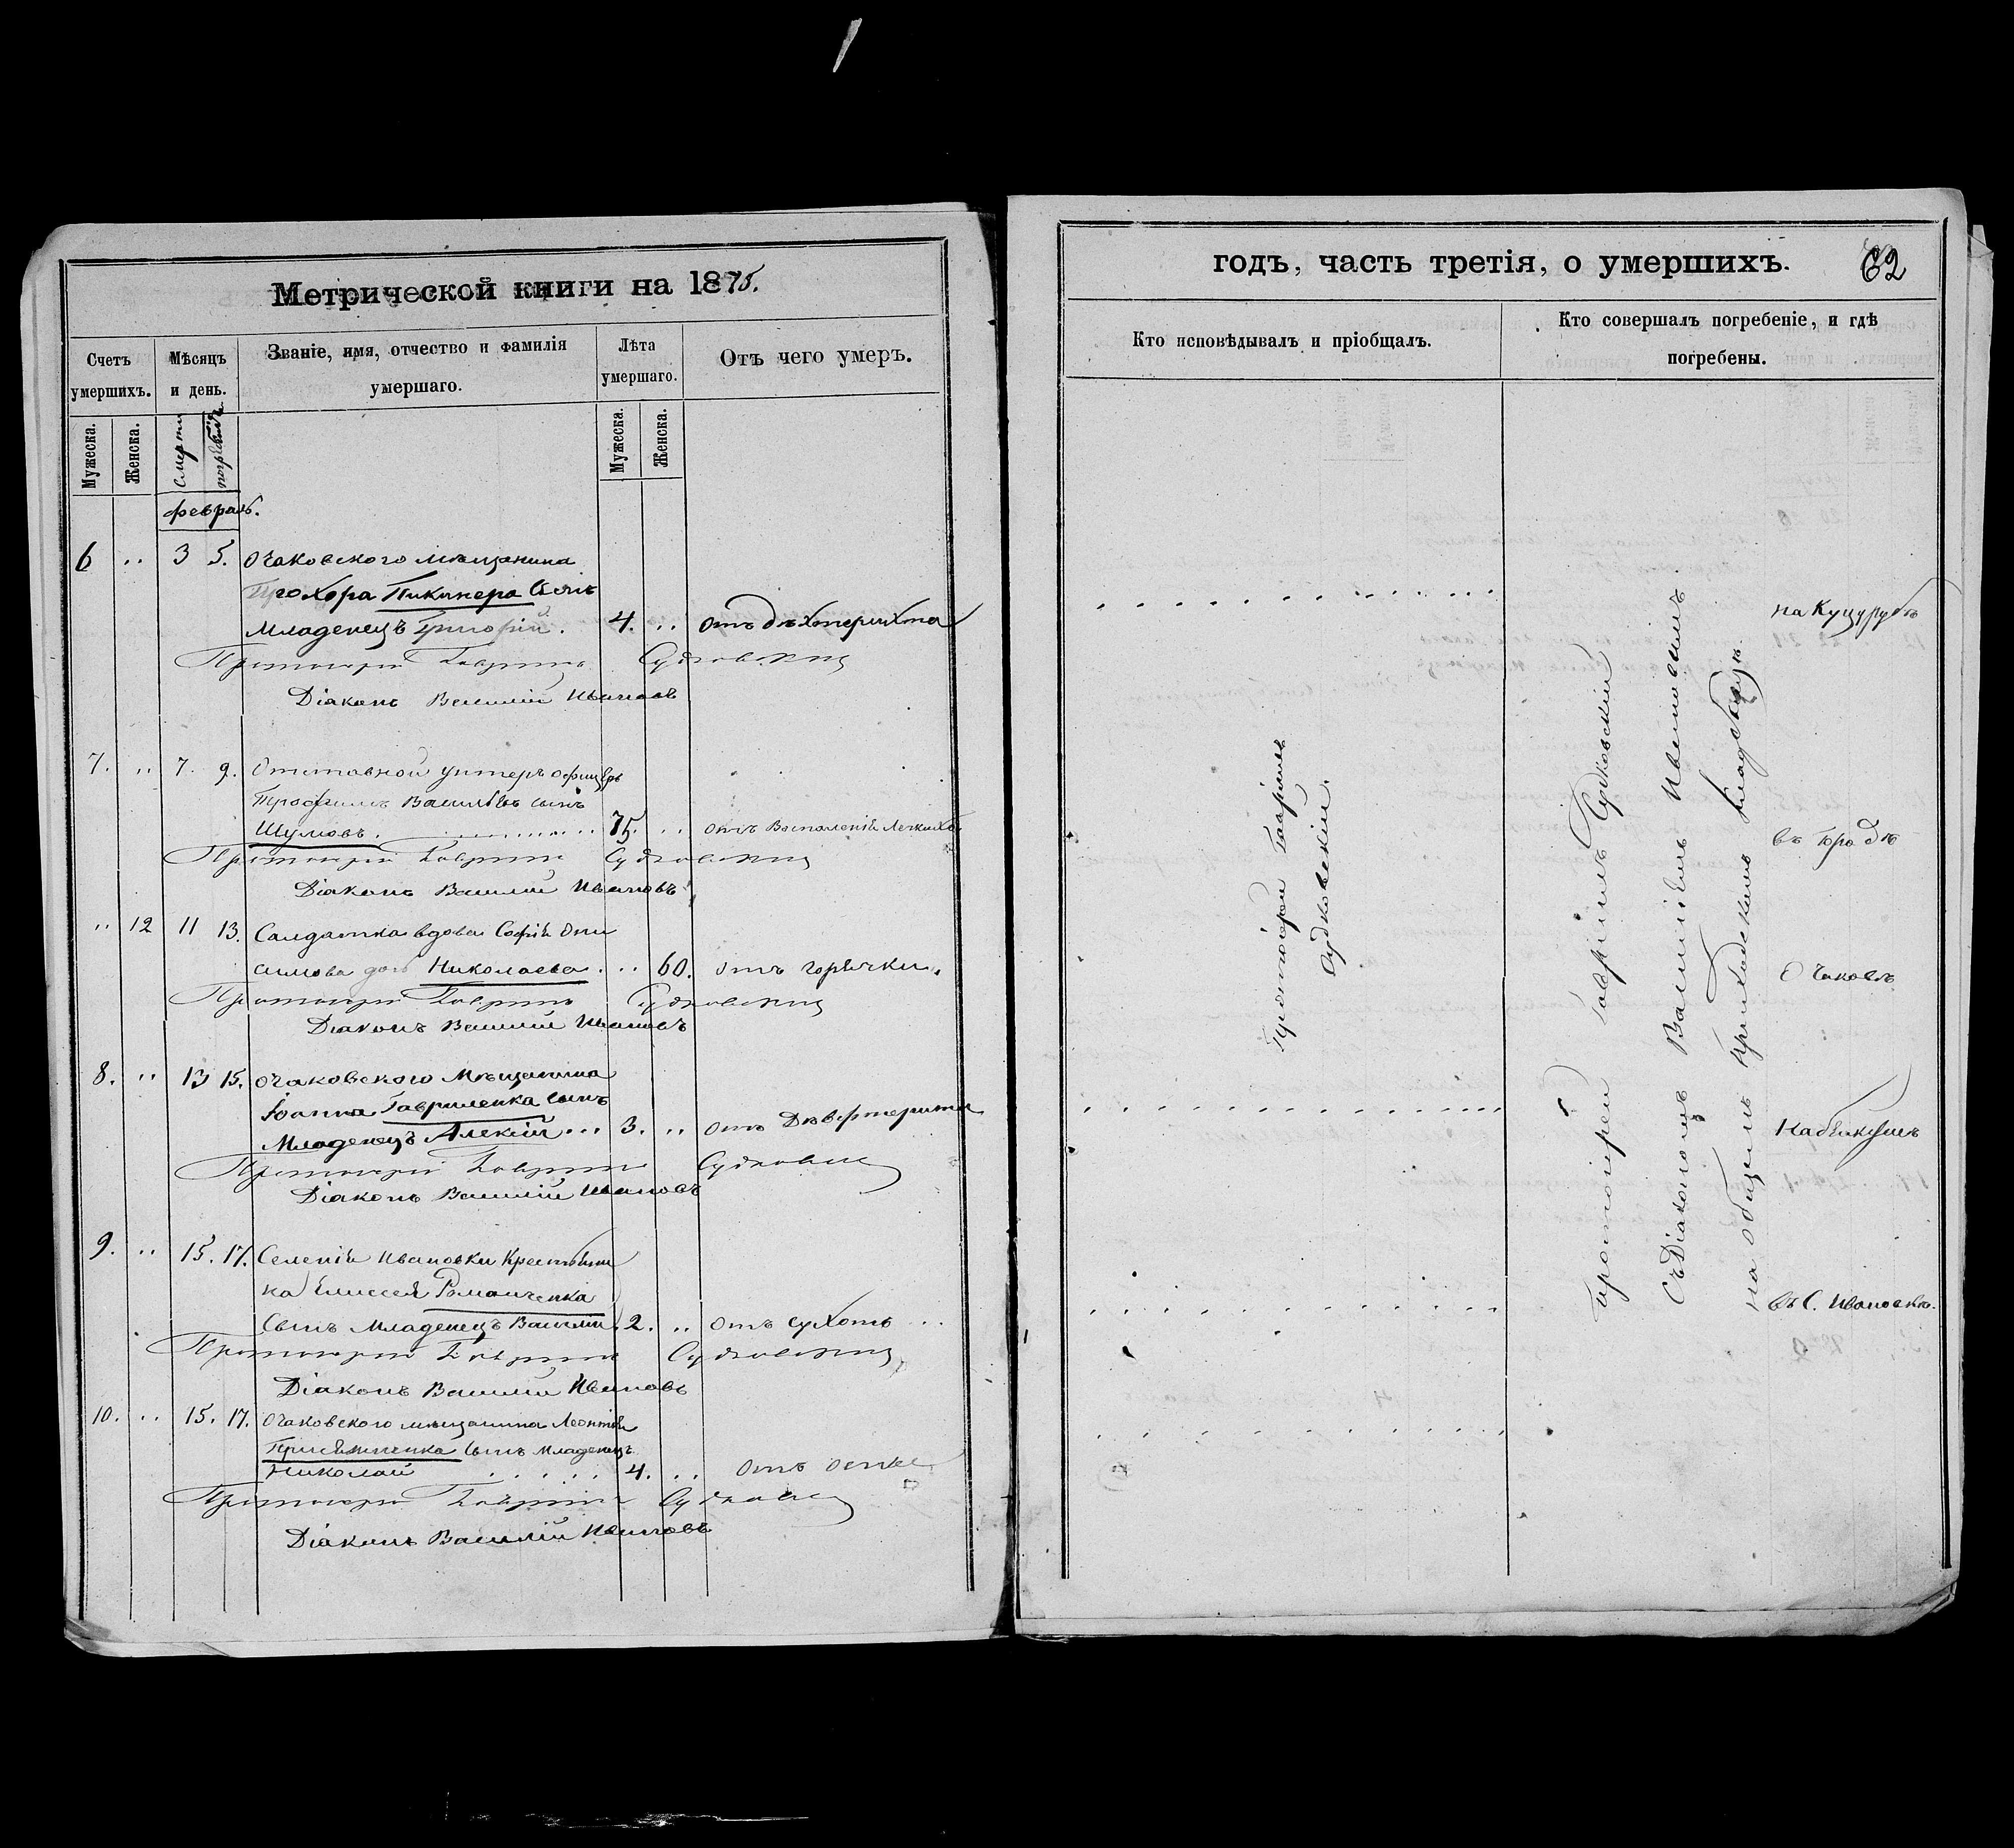 Метрической книги на 1875.
Счетъ умершихъ.
Мѣсяцъ и день.
Званіе, имя, отчество и фамилія умершаго.
Лѣта умершаго.
Отъ чего умеръ.
Мужеска.
Женска.
Смерти
погребенія
Мужеска.
Женска.
февраль.
6 .. 3 5. Очаковского мѣщанина
Прохора Пикинера сынъ
Младенецъ Григорій. 4. ..
Протоіерей Гавріилъ Судковскій
Діаконъ Василій Ивановъ
7. .. 7. 9. Отставной унтеръ офицеръ
Трофимъ Васильевъ сынъ
Шумовъ. 75. .. отъ Воспаленія Легкихъ
Протоіерей Гавріилъ Судковскій
Діаконъ Василій Ивановъ
.. 12 11 13. Салдатка вдова Софія Они
симова дочь Николаева . .. 60. отъ горячки.
Протоіерей Гавріилъ Судковскій
Діаконъ Василій Ивановъ
8. .. 13 15. Очаковского Мѣщанина
Іоанна Гавриленка сынъ
Младенецъ Алексій ... 3. .. отъ
Протоіерей Гавріилъ Судковскій
Діаконъ Василій Ивановъ
9. .. 15. 17. Селенія Ивановки Крестьяни
на Елиссея Романченка
сынъ Младенецъ Василій. 2. .. отъ сухотъ ..
Протоіерей Гавріилъ Судковскій
Діаконъ Василій Ивановъ
10. .. 15. 17. Очаковского мѣщанина Леонтія
сынъ Младенецъ
Николай . . . . . 4. .. отъ оспы
Протоіерей Гавріилъ Судковскій
Діаконъ Василій Ивановъ
годъ, часть третія, о умершихъ. 62
Кто исповѣдывалъ и пріобщалъ.
Кто совершалъ погребеніе, и гдѣ погребены.
Протоіерей Гавріилъ
Судковскій.
Протоіерей Гавріилъ Судковскій
съ Діакономъ Василіемъ Ивановымъ
на общемъ приходскомъ кладбищѣ
на Куцурубѣ
въ Очаковѣ
въ С. Ивановкѣ.